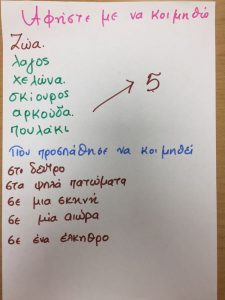 Αφήστε με να κοιμηθώ
Ζώα.
λαγος
χελώνα.
σκίουρος
αρκούδα.
πουλάκι
5
Πού προσπάθησε να κοιμηθεί
στο δέντρο
στα ψηλά πατώματα
σε μια σκηνή
σε μία αιώρα
σε ένα έλκηθρο